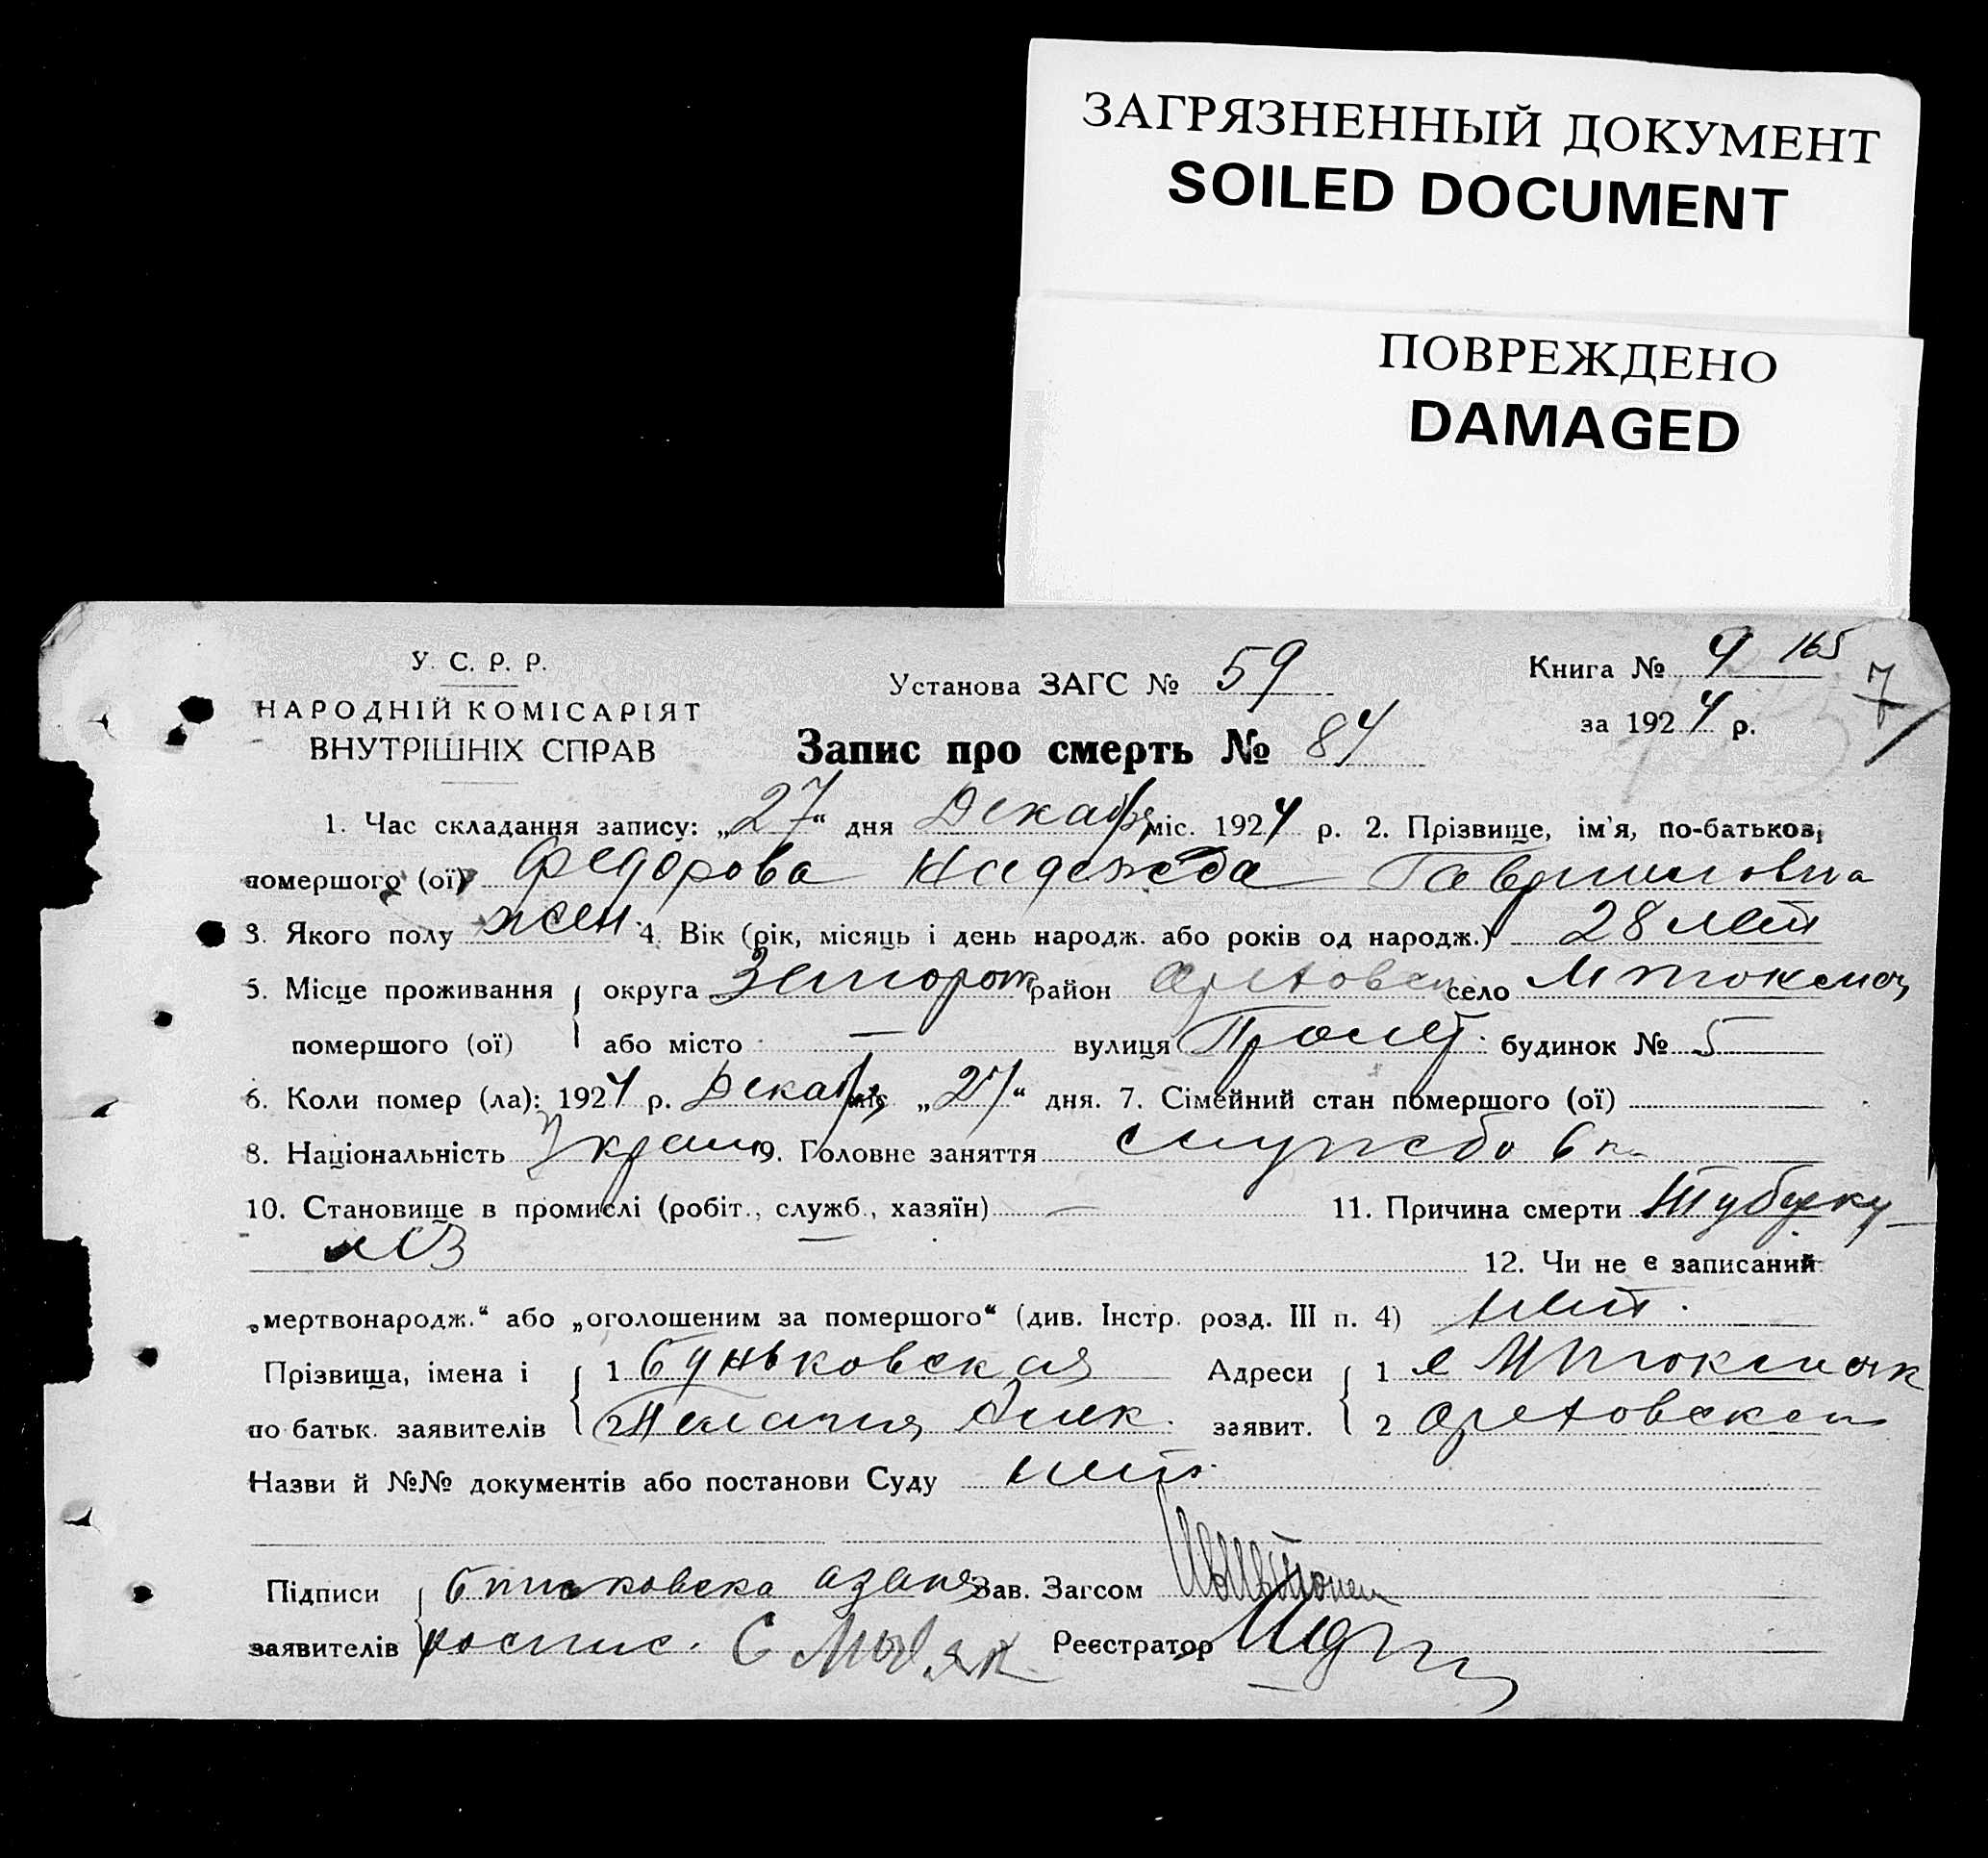 ЗАГРЯЗНЕННЫЙ ДОКУМЕНТ
SOILED DOCUMENT
ПОВРЕЖДЕНО
DAMAGED
У. С. Р. Р.
НАРОДНІЙ КОМІСАРІЯТ
ВНУТРІШНІХ СПРАВ
Установа ЗАГС № 59
Книга № 4 165
7
за 1924 р.
Запис про смерть № 84
1. Час складання запису: „27“ дня Декабря міс. 1924 р. 2. Прізвище, ім'я, по-батькові,
помершого (ої) Федорова Надежда Гавриловна
3. Якого полу жен. 4. Вік (рік, місяць і день народж. або років од народж.) 28 лет
5. Місце проживання округа Запорож район Ореховск село М Токмач
помершого (ої) або місто — вулиця Пролет. будинок № 5
6. Коли помер (ла): 1924 р. Декабря міс. „27“ дня. 7. Сімейний стан помершого (ої)
8. Національність Украин 9. Головне заняття служба
10. Становище в промислі (робіт., служб., хазяїн) — 11. Причина смерти Туберку-
лез — 12. Чи не є записаний
„мертвонародж.“ або „оголошеним за помершого“ (див. Інстр. розд. III п. 4) нет.
Прізвища, імена і 1 Буньковская Адреси 1 с М Токмачк
по батьк. заявителів 2 Пелагия Алек. заявит. 2 Ореховского
Назви й №№ документів або постанови Суду нет.
Підписи Зав. Загсом
заявителів роспис. Реєстратор